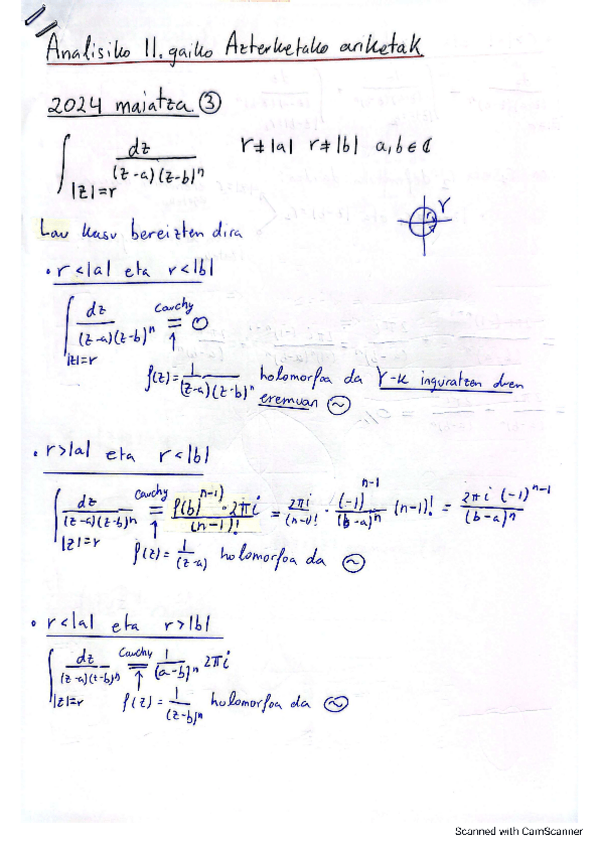 Analisiko II. gaiko Azterketako ariketak
2024 maiatza ③
∫_{|z|=r} dz / (z-a)(z-b)^n   r≠|a| r≠|b| a,b∈ℂ
r γ
Lau kasu bereizten dira
• r<|a| eta r<|b|
∫_{|z|=r} dz / (z-a)(z-b)^n = 0
Cauchy ↑
f(z) = 1 / (z-a)(z-b)^n holomorfoa da γ-k inguratzen duen
eremuan ~
• r>|a| eta r<|b|
∫_{|z|=r} dz / (z-a)(z-b)^n = f(b)^{n-1)} · 2πi / (n-1)! = 2πi / (n-1)! · (-1)^{n-1} / (b-a)^n (n-1)! = 2πi (-1)^{n-1} / (b-a)^n
Cauchy ↑
f(z) = 1 / (z-a) holomorfoa da ~
• r<|a| eta r>|b|
∫_{|z|=r} dz / (z-a)(z-b)^n = 1 / (a-b)^n 2πi
Cauchy ↑
f(z) = 1 / (z-b)^n holomorfoa da ~
Scanned with CamScanner